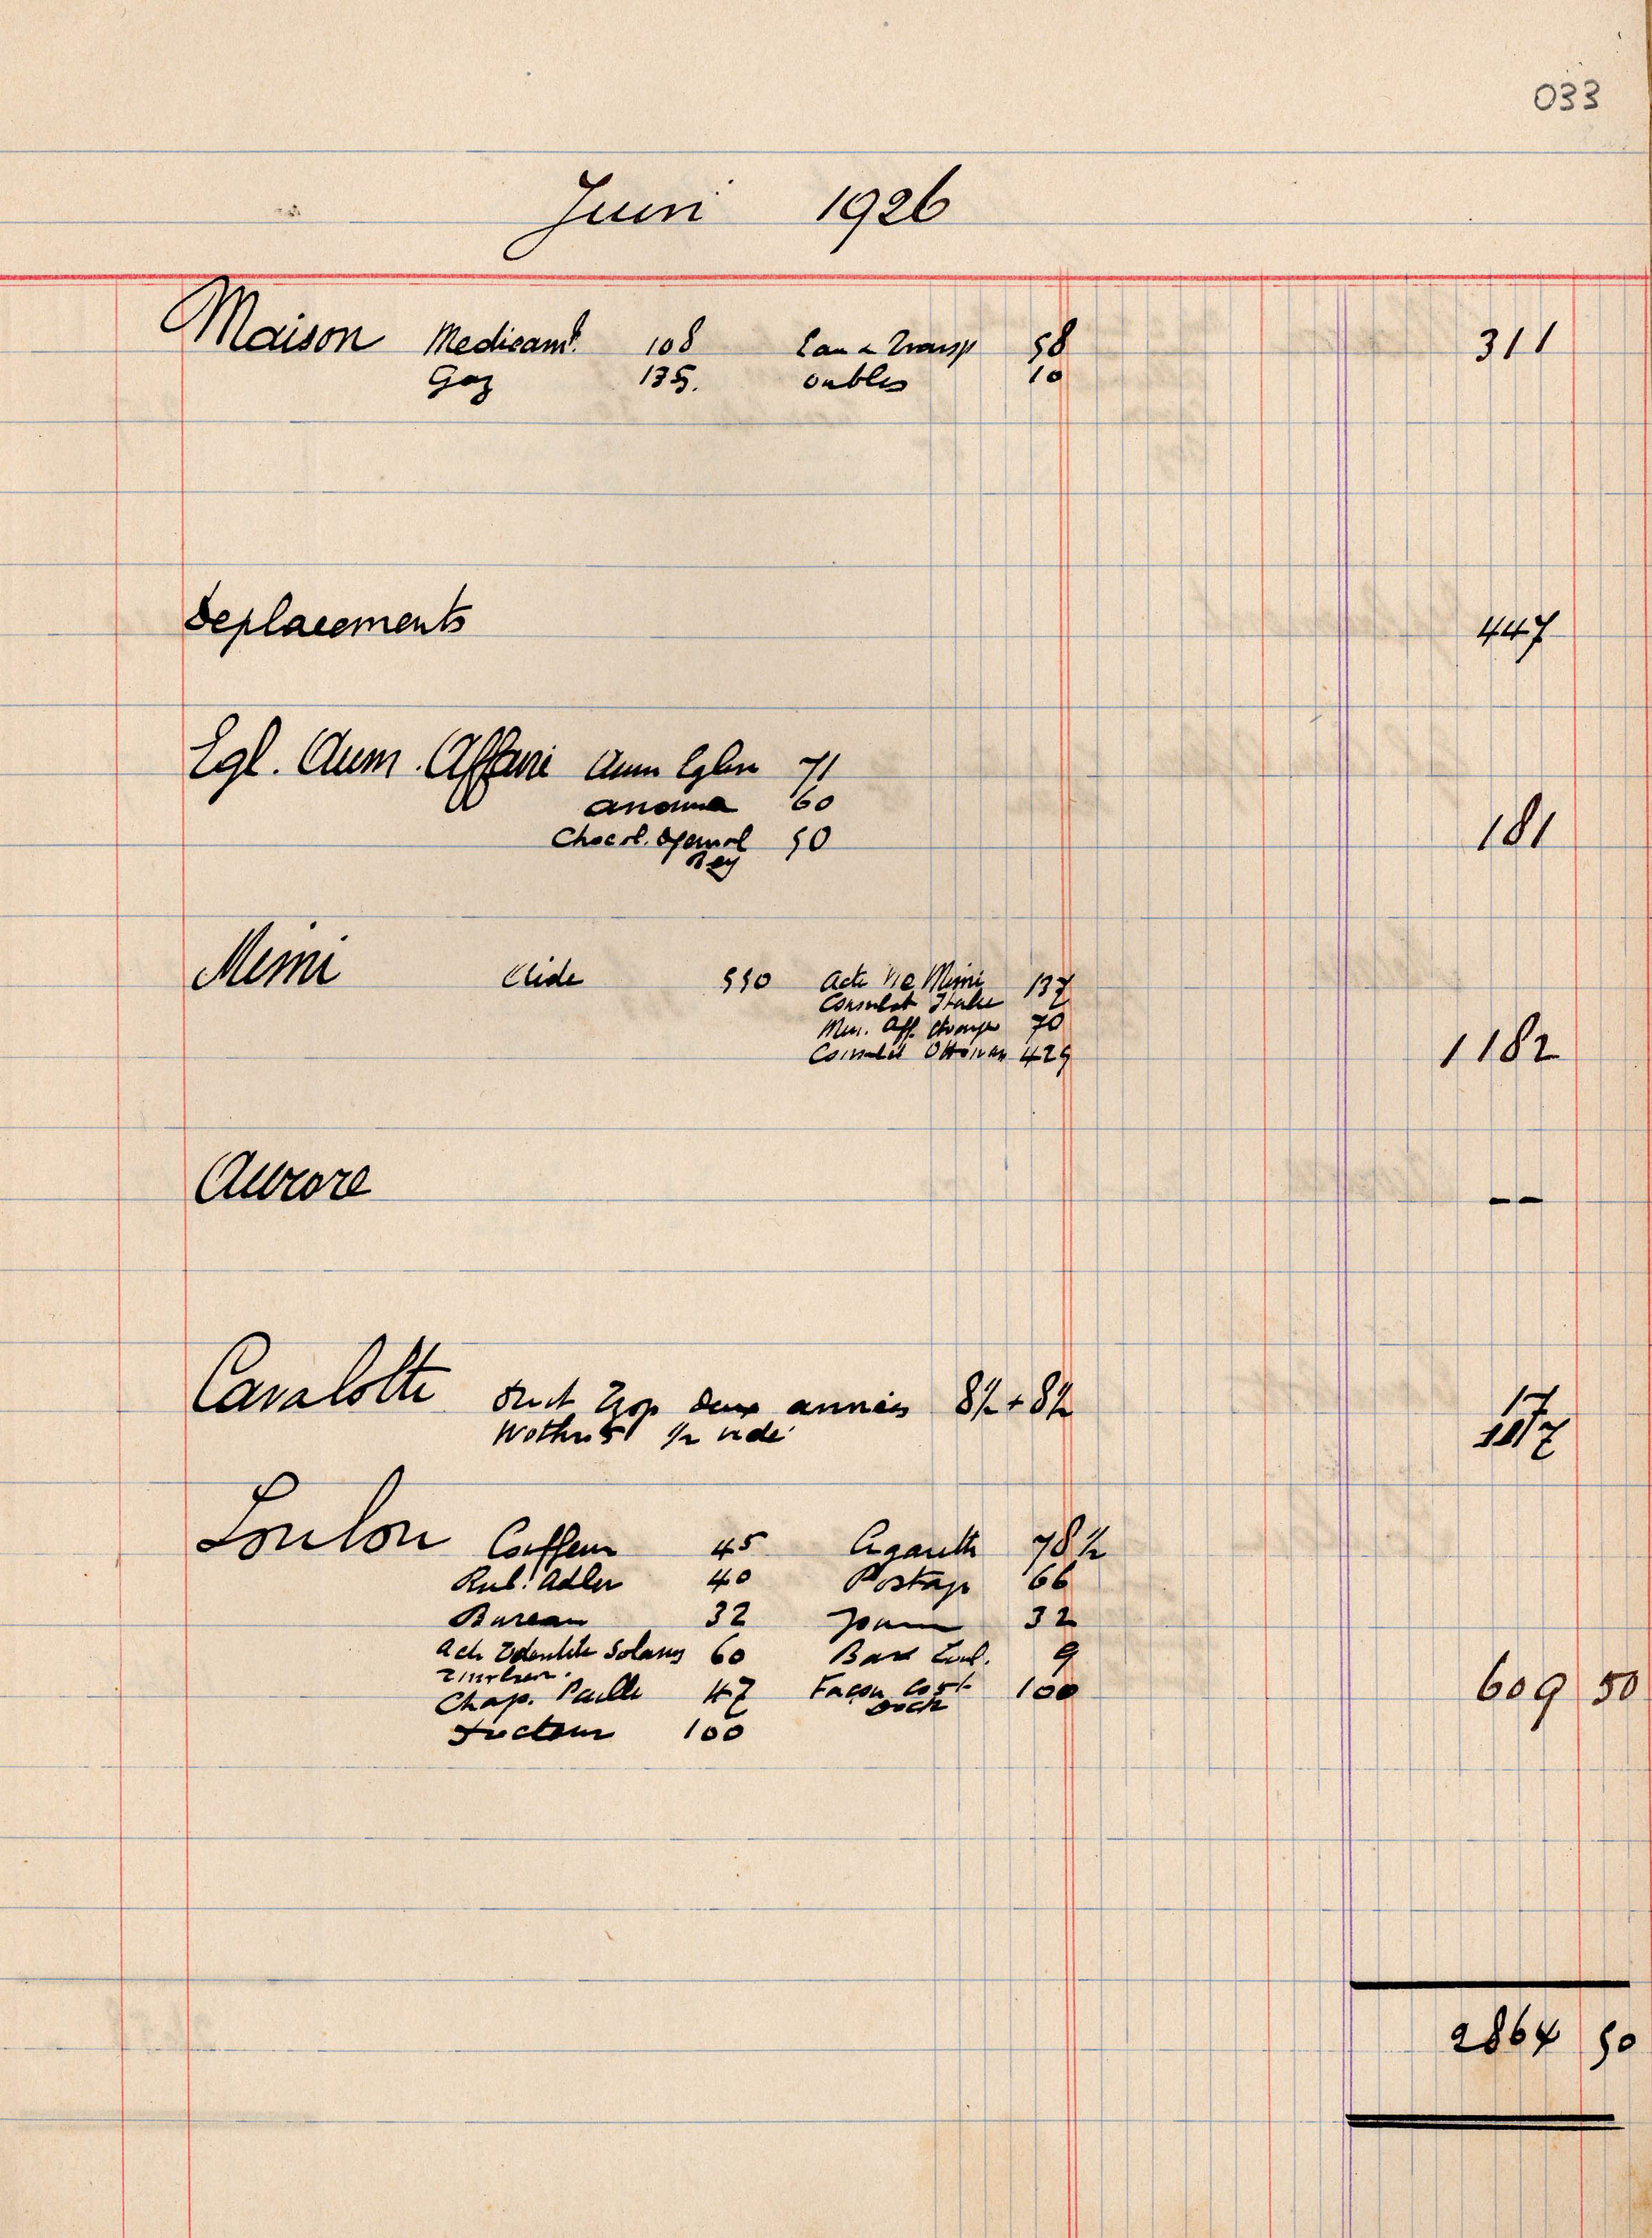 033
Juin 1926
Maison Medicamt. 108 Eau & Transp 58 311
Gaz 135. oublis 10
Deplacements 447
Egl. Aum. Affaire Aum Eglise 71
60
Chocol. 50 181
Bey
Mimi Elide 550 Acte Mimi 137
Consulat Italie
Min. Aff. etrange 70
Consulat Ottoman 425 1182
Aurore --
Cavalotti deux années 8½ + 8½ 17
½ vide
Loulou Coiffeur 45 Cigarette 78½
Rub. Adler 40 Postage 66
Bureau 32 Journ 32
Identite Solany 60 9
Chap. Paille 47 Façon Cost 100 609 50
100
2864 50